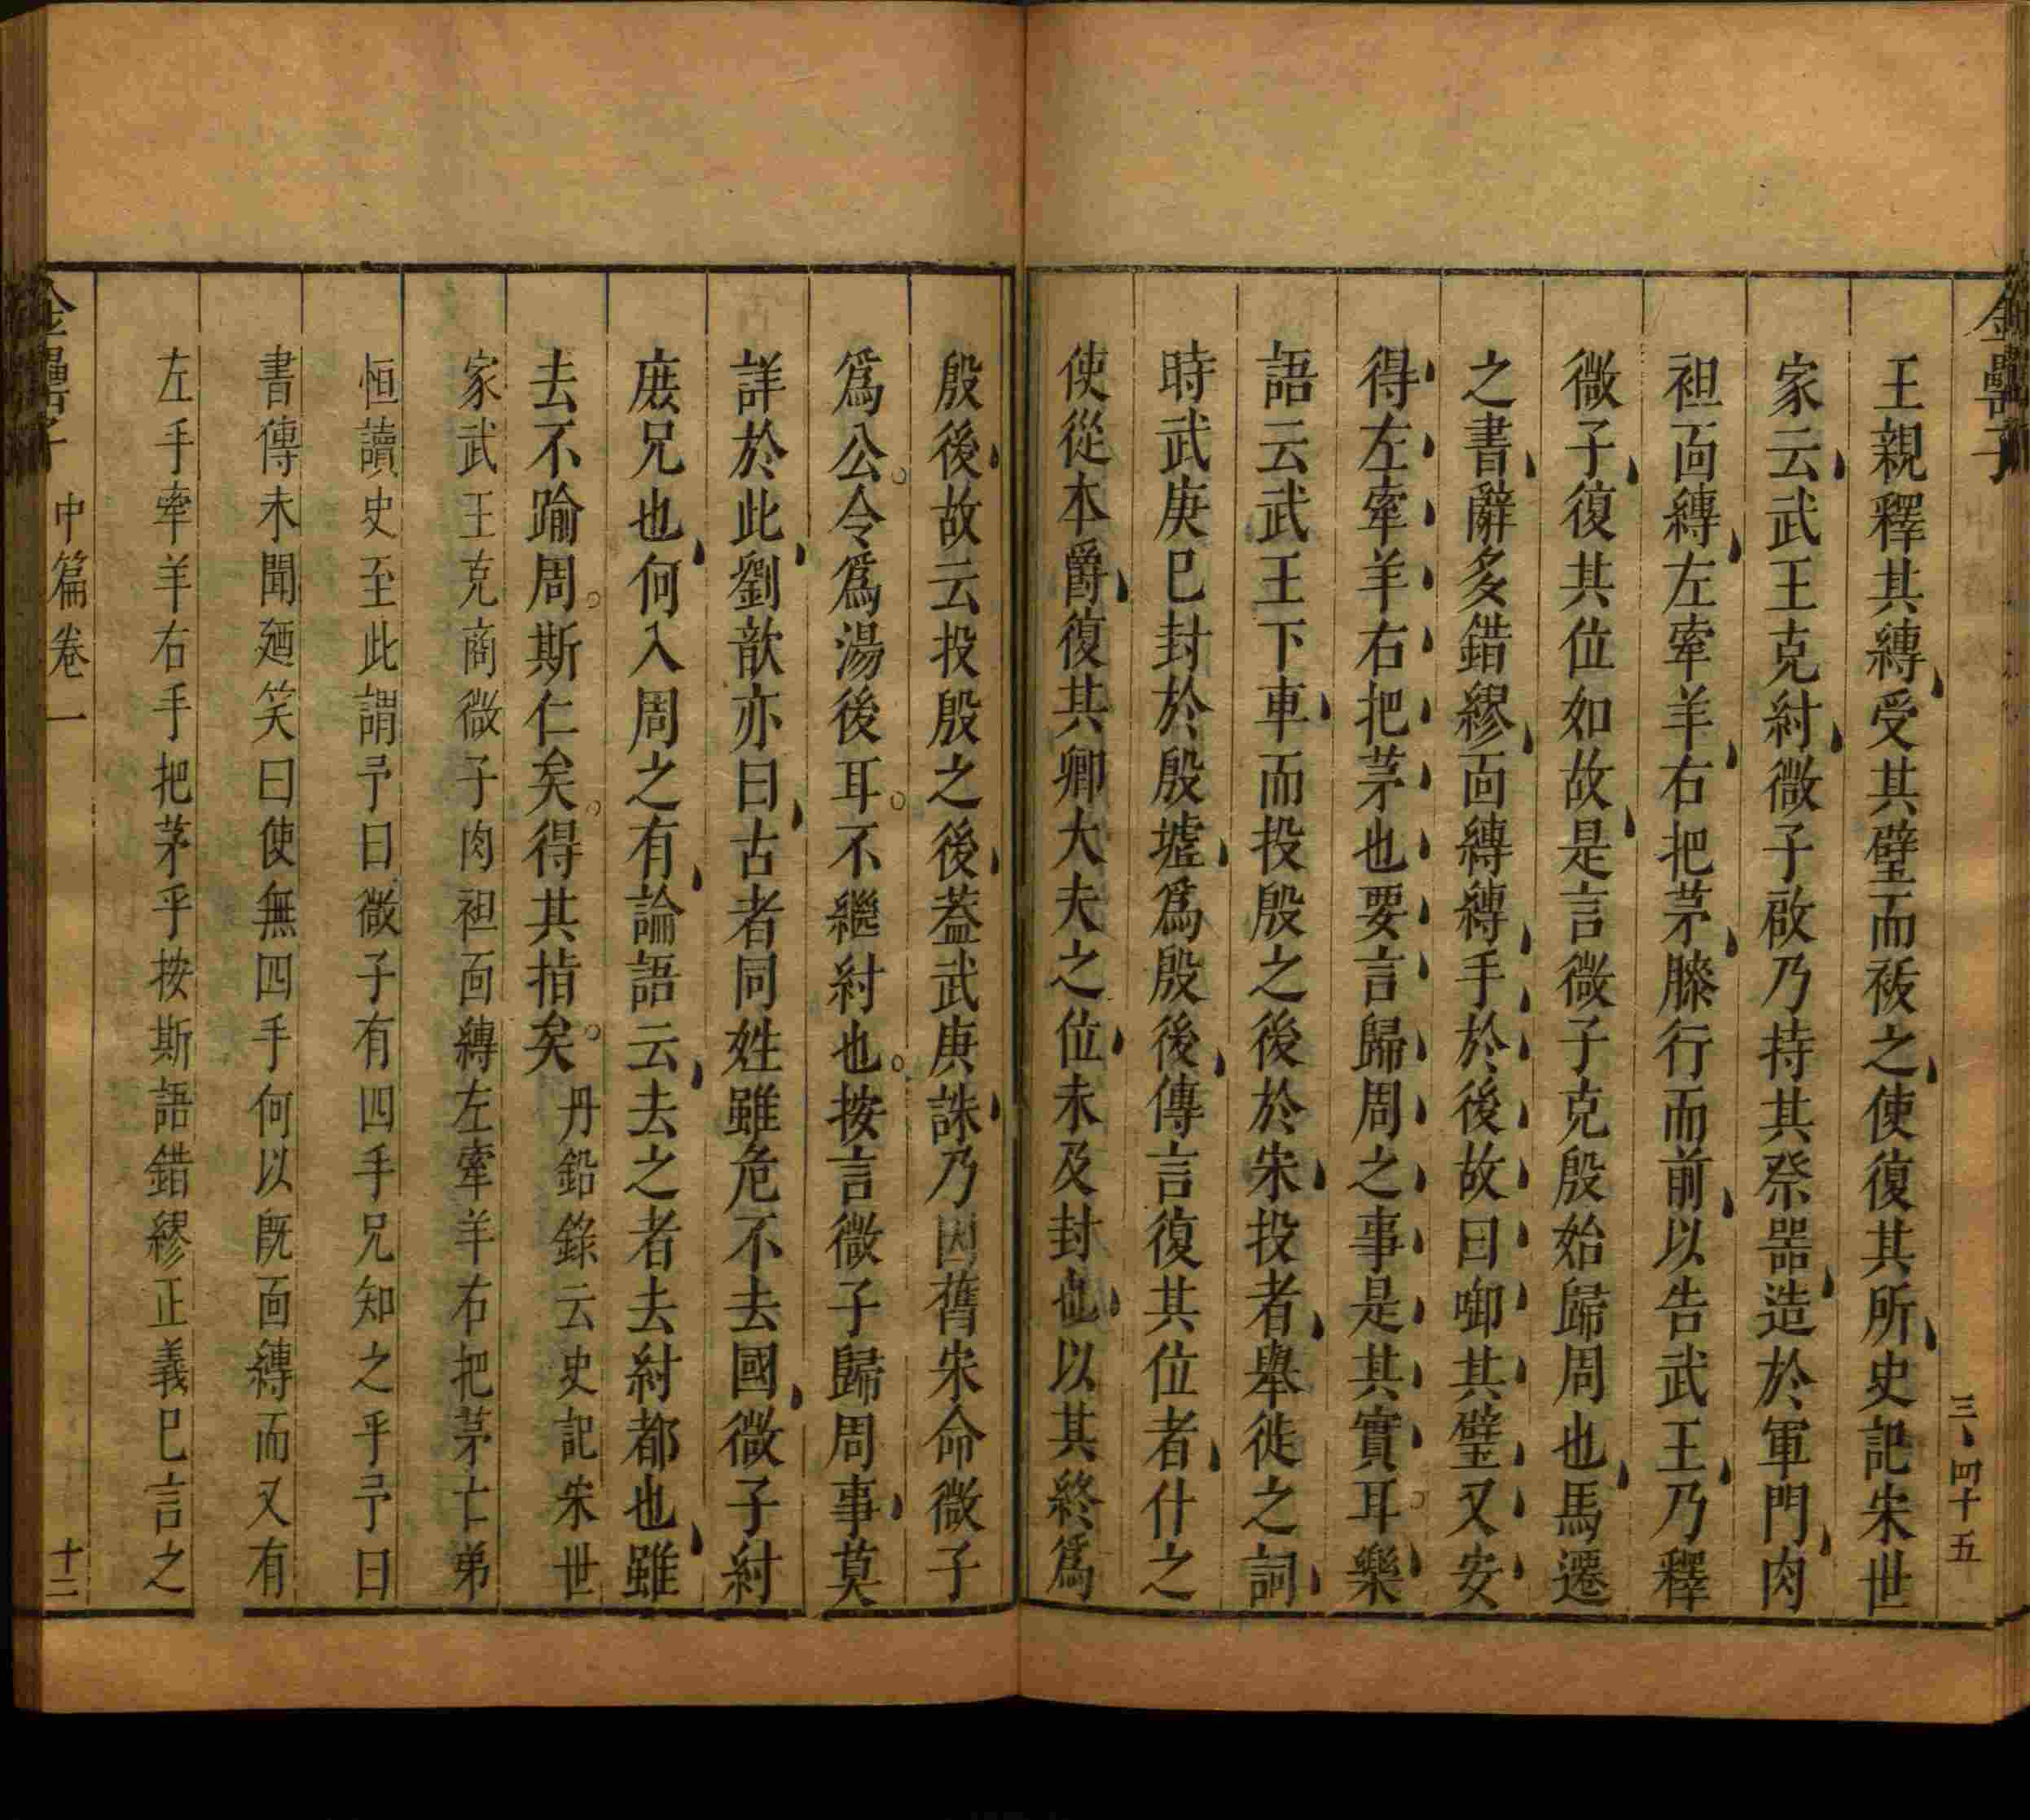 金罍子
三、四十五
王親釋其縛、受其璧而袚之、使復其所、史記宋世
家云、武王克紂、微子啟乃持其祭噐、造於軍門、肉
袒面縛、左牽羊、右把茅、膝行而前、以告武王、乃釋
微子、復其位如故、是言微子克殷始歸周也、馬遷
之書、辭多錯繆、面縛縛、手、於、後、故、曰、啣、其、璧、又、安、
得、左、牽、羊、右、把、茅、也、要、言、歸、周、之、事、是、其、實、耳。樂、
語云武王下車、而投殷之後於宋、投者、舉徙之詞、
時武庚巳封於殷墟、爲殷後、傳言復其位者、什之
使從本爵、復其卿大夫之位、未及封也、以其終爲
殷後、故云投殷之後、葢武庚誅、乃因舊宋命微子
爲公。令爲湯後耳。不繼紂也。按言微子歸周事、莫
詳於此、劉歆亦曰、古者同姓雖危不去國、微子紂
庻兄也、何入周之有、論語云、去之者去紂都也、雖
去不踰周。斯仁矣。得其指矣。丹鉛錄云史記宋世
家武王克商微子肉袒面縛左牽羊右把茅亡弟
恒讀史至此謂予曰微子有四手兄知之乎予曰
書傳未聞廼笑曰使無四手何以既面縛而又有
左手牽羊右手把茅乎按斯語錯繆正義巳言之
金罍子 中篇卷一 十二